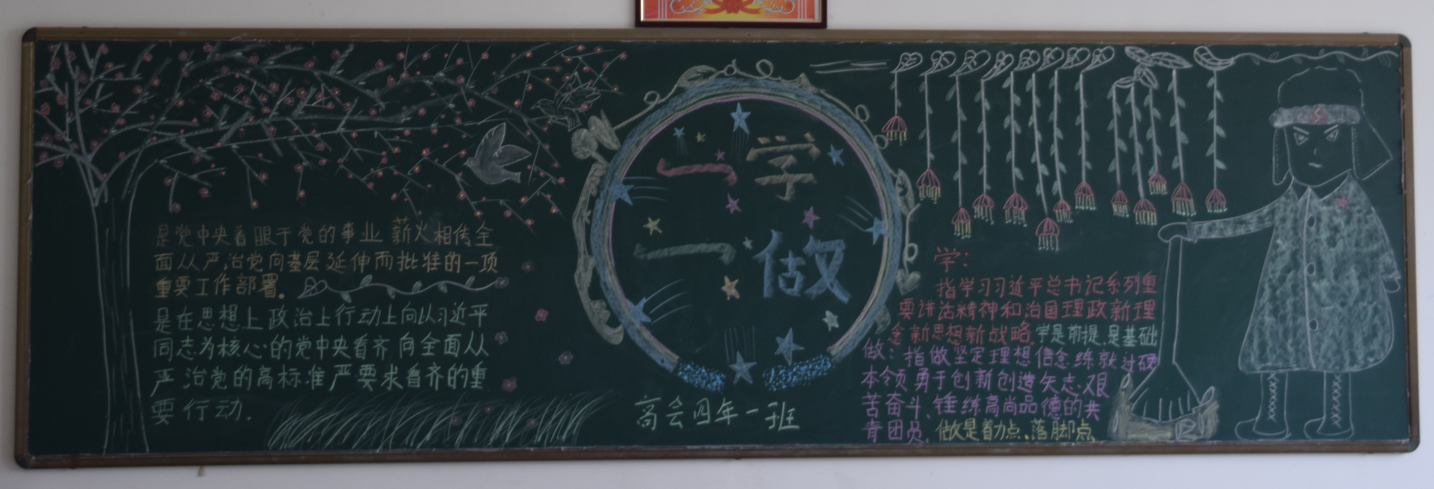 是党中央着眼于党的事业薪火相传全
面从严治党向基层延伸而批准的一项
重要工作部署。
是在思想上政治上行动上向以习近平
同志为核心的党中央看齐向全面从
严治党的高标准严要求看齐的重
要行动.
一学
一做
高会四年一班
学:
指学习习近平总书记系列重
要讲话精神和治国理政新理
念新思想新战略.学是前提.是基础
做:指做坚定理想信念练就过硬
本领勇于创新创造矢志艰
苦奋斗、锤练高尚品德的共
青团员.做是着力点、落脚点